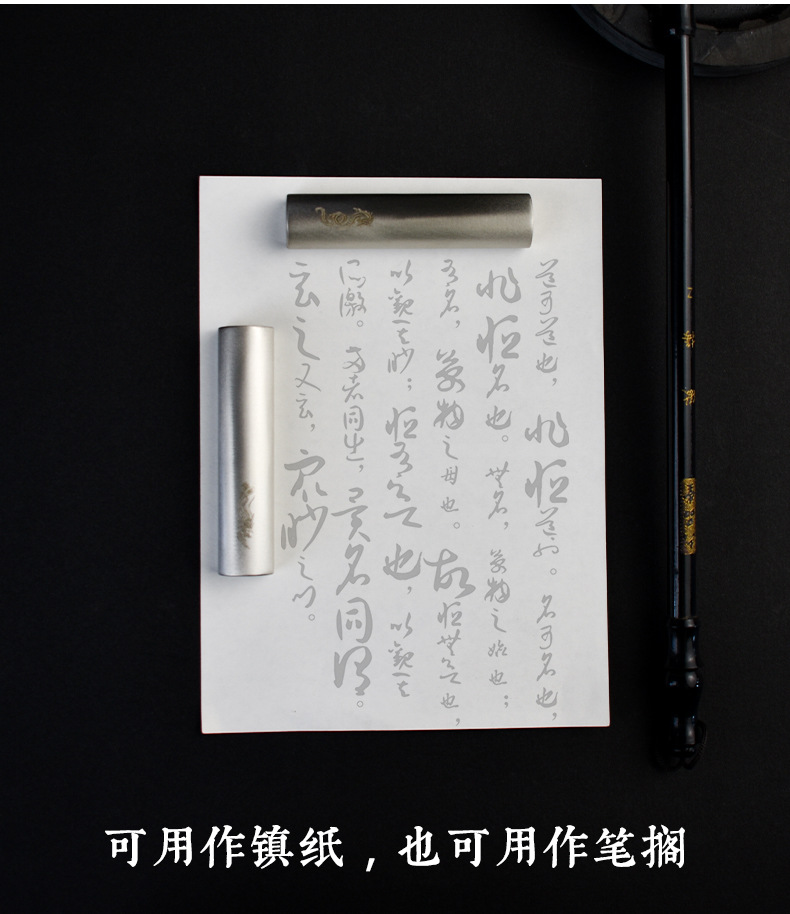 道可道也，非恒道也。名可名也，
非恒名也。無名，萬物之始也；
有名，萬物之母也。故恒無欲也，
以觀其眇；恒有欲也，以觀其
所徼。兩者同出，異名同謂。
玄之又玄，眾眇之門。
可用作镇纸，也可用作笔搁